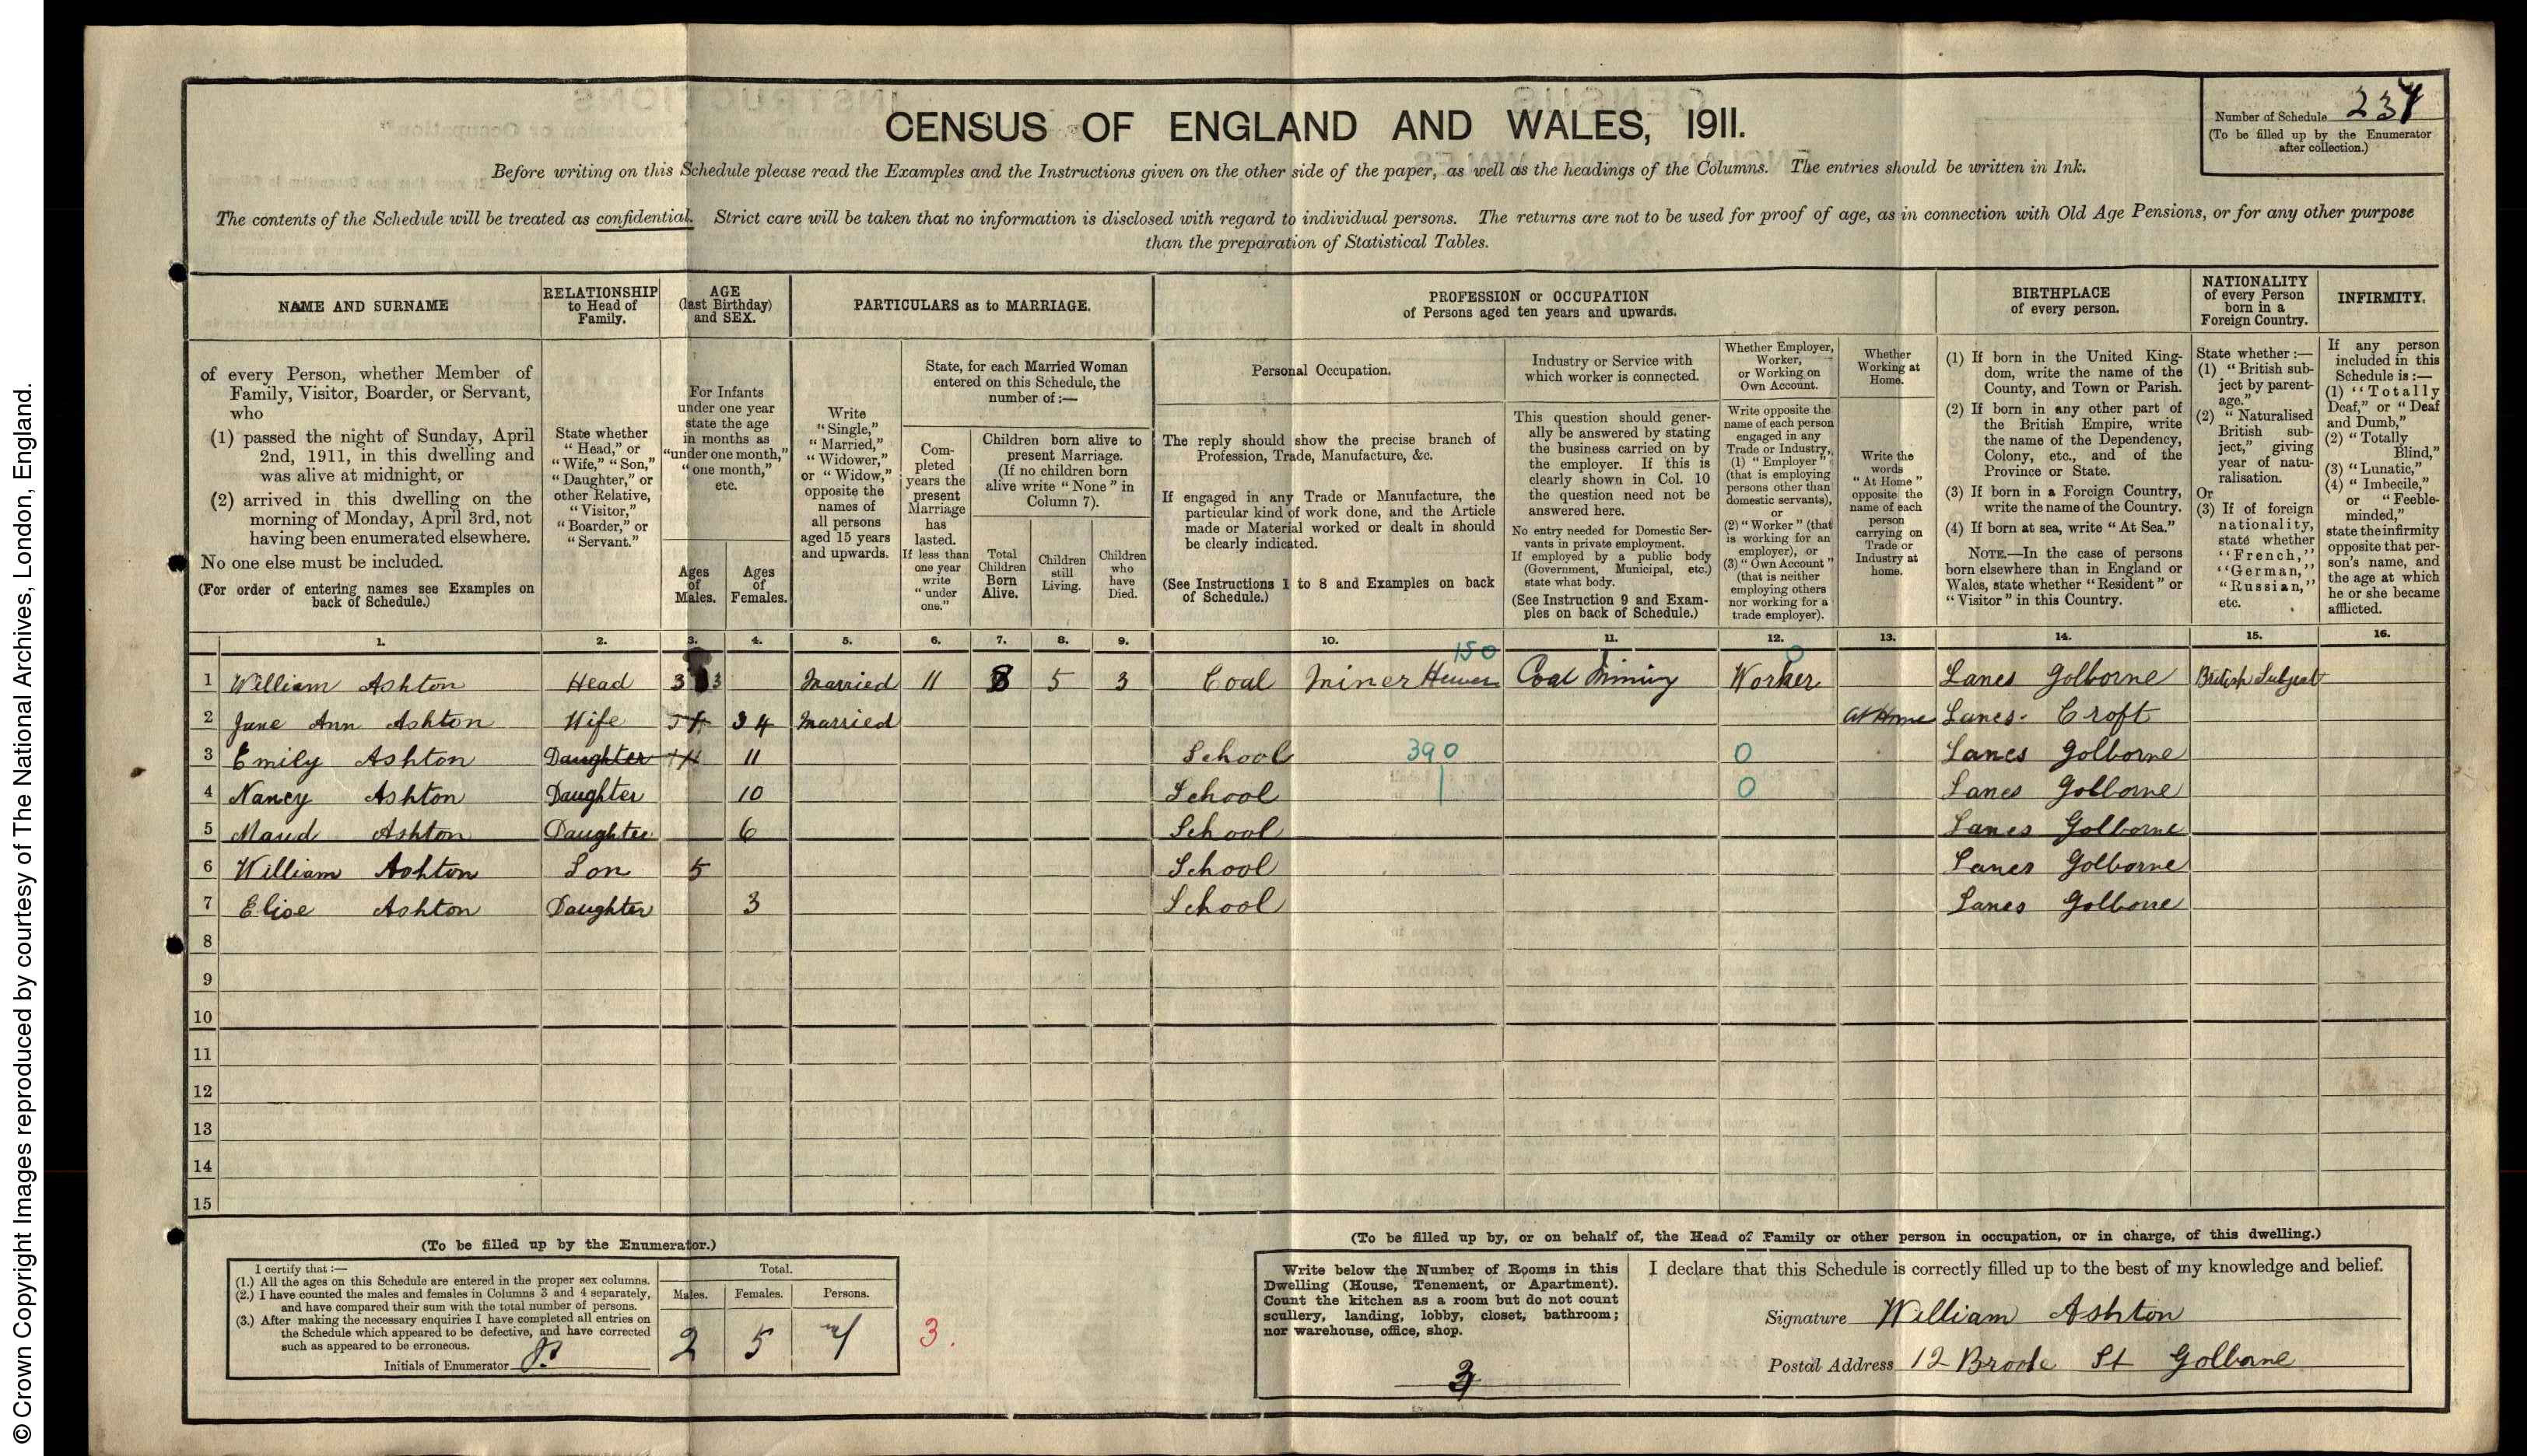 © Crown Copyright Images reproduced by courtesy of The National Archives, London, England.
CENSUS OF ENGLAND AND WALES, 1911.
Number of Schedule 237
(To be filled up by the Enumerator after collection.)
Before writing on this Schedule please read the Examples and the Instructions given on the other side of the paper, as well as the headings of the Columns. The entries should be written in Ink.
The contents of the Schedule will be treated as confidential. Strict care will be taken that no information is disclosed with regard to individual persons. The returns are not to be used for proof of age, as in connection with Old Age Pensions, or for any other purpose
than the preparation of Statistical Tables.
NAME AND SURNAME
of every Person, whether Member of Family, Visitor, Boarder, or Servant, who
(1) passed the night of Sunday, April 2nd, 1911, in this dwelling and was alive at midnight, or
(2) arrived in this dwelling on the morning of Monday, April 3rd, not having been enumerated elsewhere.
No one else must be included.
(For order of entering names see Examples on back of Schedule.)
RELATIONSHIP to Head of Family.
State whether "Head," or "Wife," "Son," "Daughter," or other Relative, "Visitor," "Boarder," or "Servant."
AGE (last Birthday) and SEX.
For Infants under one year state the age in months as "under one month," "one month," etc.
Ages of Males.
Ages of Females.
PARTICULARS as to MARRIAGE.
Write "Single," "Married," "Widower," or "Widow," opposite the names of all persons aged 15 years and upwards.
State, for each Married Woman entered on this Schedule, the number of :—
Completed years the present Marriage has lasted. If less than one year write "under one."
Children born alive to present Marriage. (If no children born alive write "None" in Column 7).
Total Children Born Alive.
Children still Living.
Children who have Died.
PROFESSION or OCCUPATION
of Persons aged ten years and upwards.
Personal Occupation.
The reply should show the precise branch of Profession, Trade, Manufacture, &c.
If engaged in any Trade or Manufacture, the particular kind of work done, and the Article made or Material worked or dealt in should be clearly indicated.
(See Instructions 1 to 8 and Examples on back of Schedule.)
Industry or Service with which worker is connected.
This question should generally be answered by stating the business carried on by the employer. If this is clearly shown in Col. 10 the question need not be answered here.
No entry needed for Domestic Servants in private employment. If employed by a public body (Government, Municipal, etc.) state what body.
(See Instruction 9 and Examples on back of Schedule.)
Whether Employer, Worker, or Working on Own Account.
Write opposite the name of each person engaged in any Trade or Industry, (1) "Employer" (that is employing persons other than domestic servants), or (2) "Worker" (that is working for an employer), or (3) "Own Account" (that is neither employing others nor working for a trade employer).
Whether Working at Home.
Write the words "At Home" opposite the name of each person carrying on Trade or Industry at home.
BIRTHPLACE of every person.
(1) If born in the United Kingdom, write the name of the County, and Town or Parish.
(2) If born in any other part of the British Empire, write the name of the Dependency, Colony, etc., and of the Province or State.
(3) If born in a Foreign Country, write the name of the Country.
(4) If born at sea, write "At Sea."
NOTE.—In the case of persons born elsewhere than in England or Wales, state whether "Resident" or "Visitor" in this Country.
NATIONALITY of every Person born in a Foreign Country.
State whether :—
(1) "British subject by parentage."
(2) "Naturalised British subject," giving year of naturalisation.
Or
(3) If of foreign nationality, state whether "French," "German," "Russian," etc.
INFIRMITY.
If any person included in this Schedule is :—
(1) "Totally Deaf," or "Deaf and Dumb,"
(2) "Totally Blind,"
(3) "Lunatic,"
(4) "Imbecile," or "Feeble-minded,"
state the infirmity opposite that person's name, and the age at which he or she became afflicted.
1. 2. 3. 4. 5. 6. 7. 8. 9. 10. 11. 12. 13. 14. 15. 16.
150 0
1 William Ashton Head 33 Married 11 8 5 3 Coal Miner Hewer Coal Mining Worker Lancs Golborne British Subject
2 Jane Ann Ashton Wife 34 Married At Home Lancs. Croft
3 Emily Ashton Daughter 11 School 390 0 Lancs Golborne
4 Nancy Ashton Daughter 10 School 0 Lancs Golborne
5 Maud Ashton Daughter 6 School Lancs Golborne
6 William Ashton Son 5 School Lancs Golborne
7 Elise Ashton Daughter 3 School Lancs Golborne
8
9
10
11
12
13
14
15
(To be filled up by the Enumerator.)
I certify that :—
(1.) All the ages on this Schedule are entered in the proper sex columns.
(2.) I have counted the males and females in Columns 3 and 4 separately, and have compared their sum with the total number of persons.
(3.) After making the necessary enquiries I have completed all entries on the Schedule which appeared to be defective, and have corrected such as appeared to be erroneous.
Initials of Enumerator
Total.
Males. Females. Persons.
2 5 7
3.
(To be filled up by, or on behalf of, the Head of Family or other person in occupation, or in charge, of this dwelling.)
Write below the Number of Rooms in this Dwelling (House, Tenement, or Apartment). Count the kitchen as a room but do not count scullery, landing, lobby, closet, bathroom; nor warehouse, office, shop.
I declare that this Schedule is correctly filled up to the best of my knowledge and belief.
Signature William Ashton
Postal Address 12 Brooke St Golborne